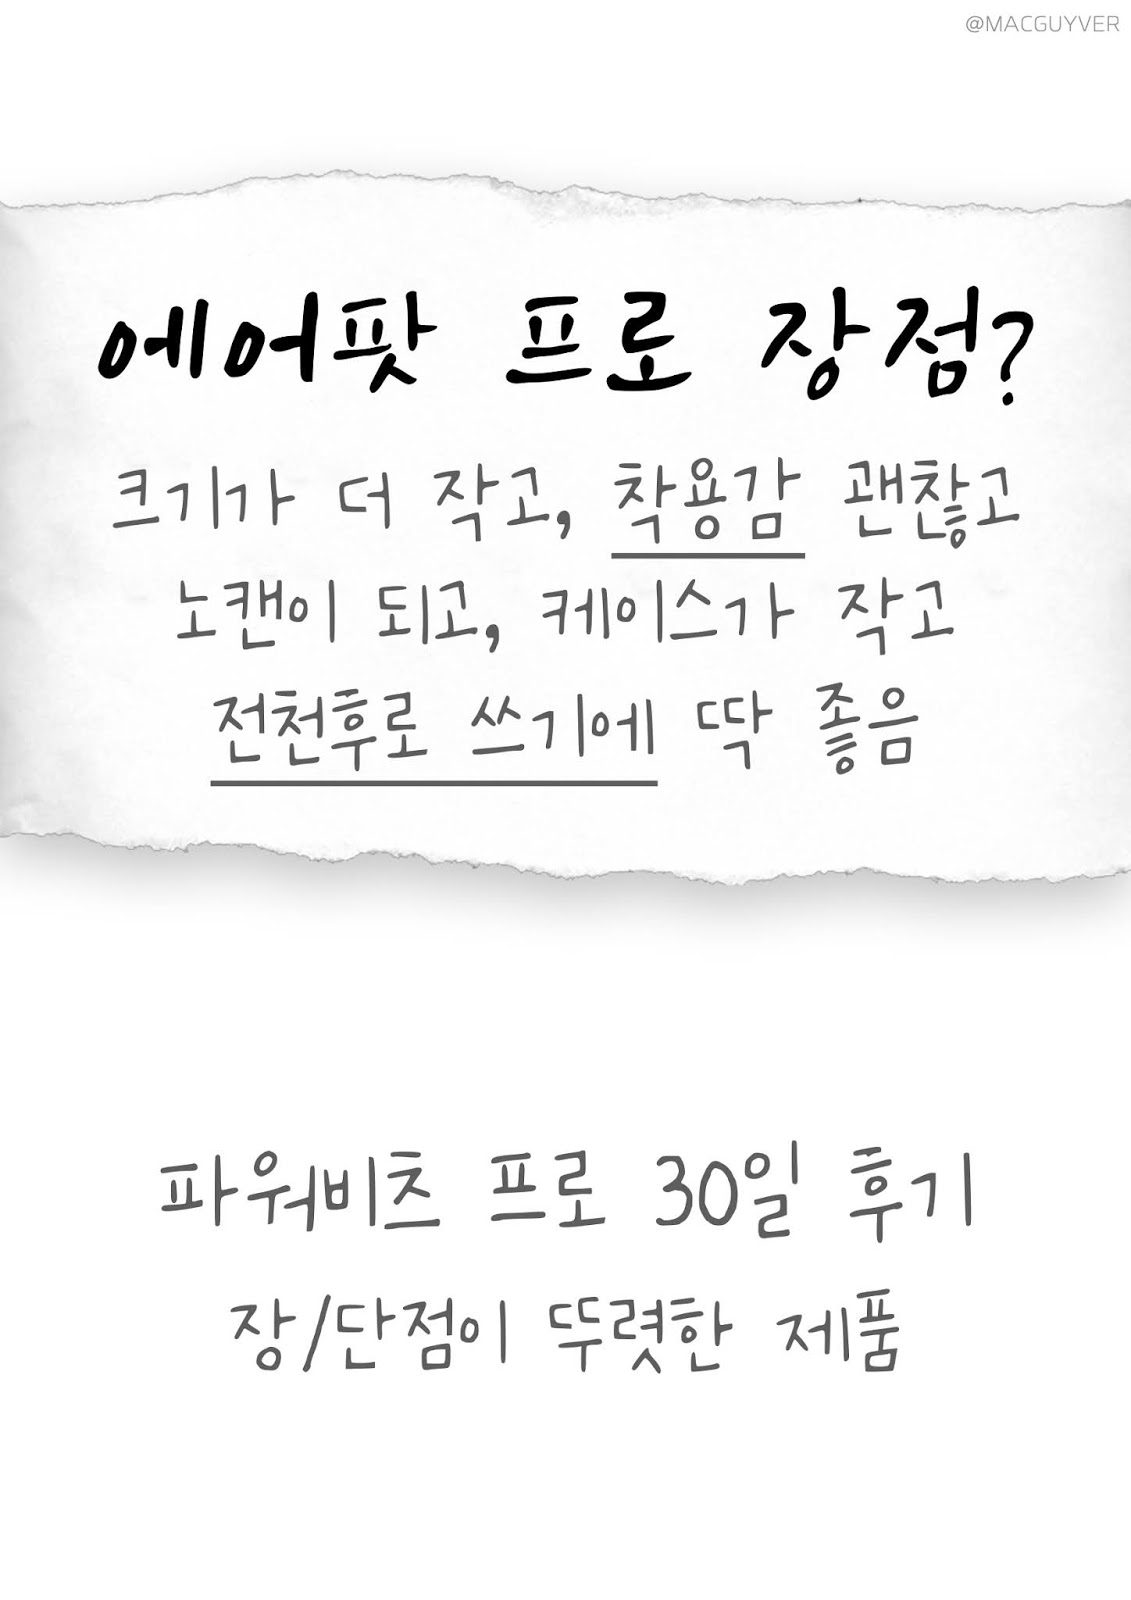 @MACGUYVER
에어팟 프로 장점?
크기가 더 작고, 착용감 괜찮고
노캔이 되고, 케이스가 작고
전천후로 쓰기에 딱 좋음
파워비츠 프로 30일 후기
장/단점이 뚜렷한 제품